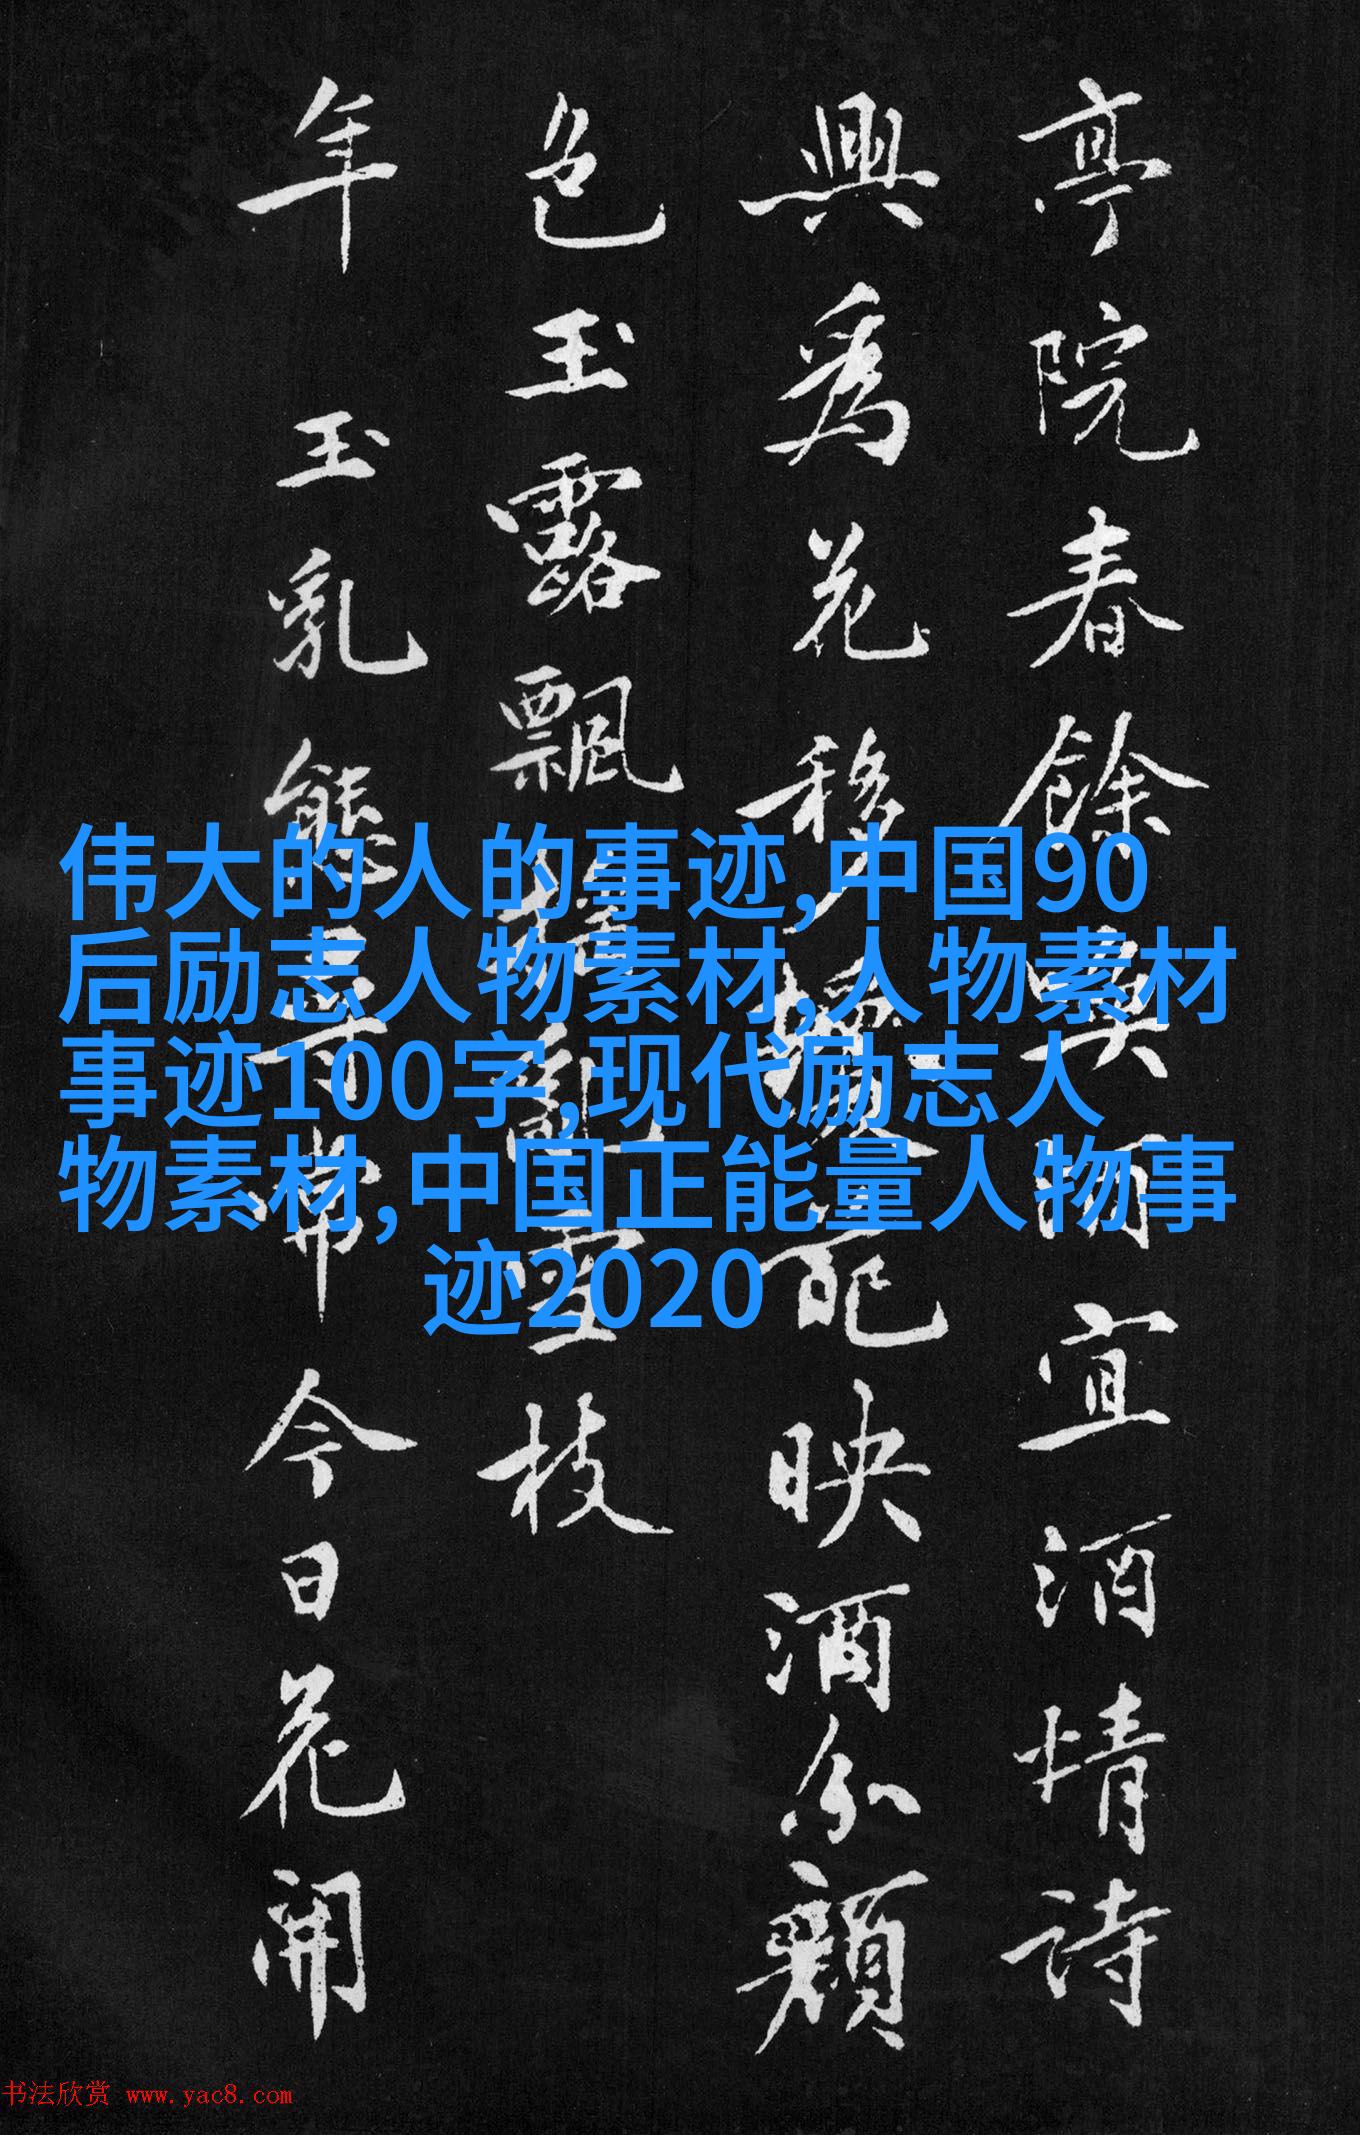 亭院春餘興酒宜酒情诗
興為花移 配映酒分顏
色玉露飄 枝
年玉乳能 常今日花開
伟大的人的事迹,中国90
后励志人物素材,人物素材
事迹100字,现代励志人
物素材,中国正能量人物事
迹2020
书法欣赏 www.yac8.com